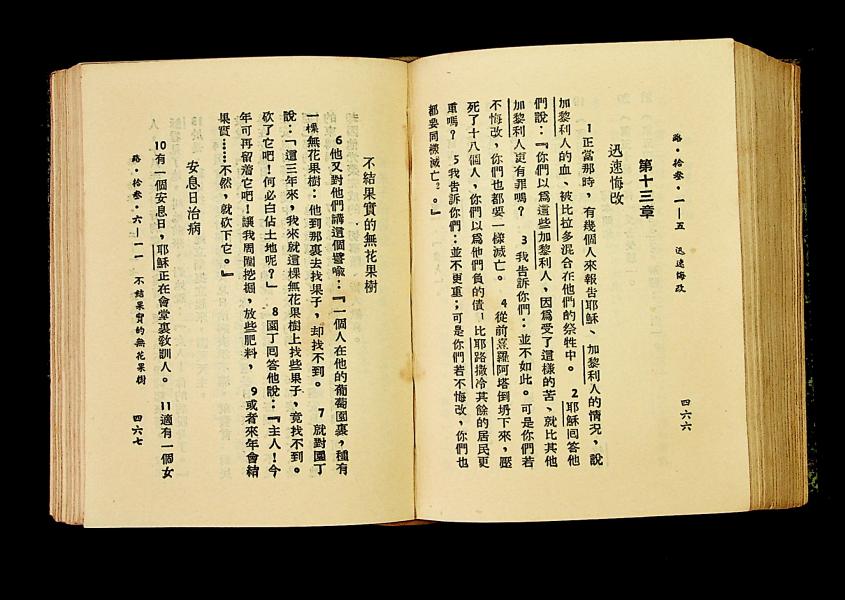 路·拾叁·一—五　迅速悔改　四六六
第十三章
迅速悔改
1正當那時，有幾個人來報告耶穌、加黎利人的情況，說
加黎利人的血、被比拉多混合在他們的祭牲中。　2耶穌囘答他
們說：『你們以爲這些加黎利人，因爲受了這樣的苦、就比其他
加黎利人更有罪嗎？　3我告訴你們：並不如此。可是你們若
不悔改，你們也都要一樣滅亡。　4從前熏羅阿塔倒坍下來，壓
死了十八個人，你們以爲他們負的債、比耶路撒冷其餘的居民更
重嗎？　5我告訴你們：並不更重；可是你們若不悔改，你們也
都要同樣滅亡。』
不結果實的無花果樹
6他又對他們講這個譬喩：『一個人在他的葡萄園裏，種有
一棵無花果樹：他到那裏去找果子，却找不到。　7就對園丁
說：「這三年來，我來就這棵無花果樹上找些果子，竟找不到。
砍了它吧！何必白佔土地呢？」　8園丁囘答他說：『主人！今
年可再留着它吧！讓我周圍挖掘，放些肥料，　9或者來年會結
果實……不然，就砍下它。』
安息日治病
10有一個安息日，耶穌正在會堂裏敎訓人。　11適有一個女
路·拾叁·六—一一　不結果實的無花果樹　四六七